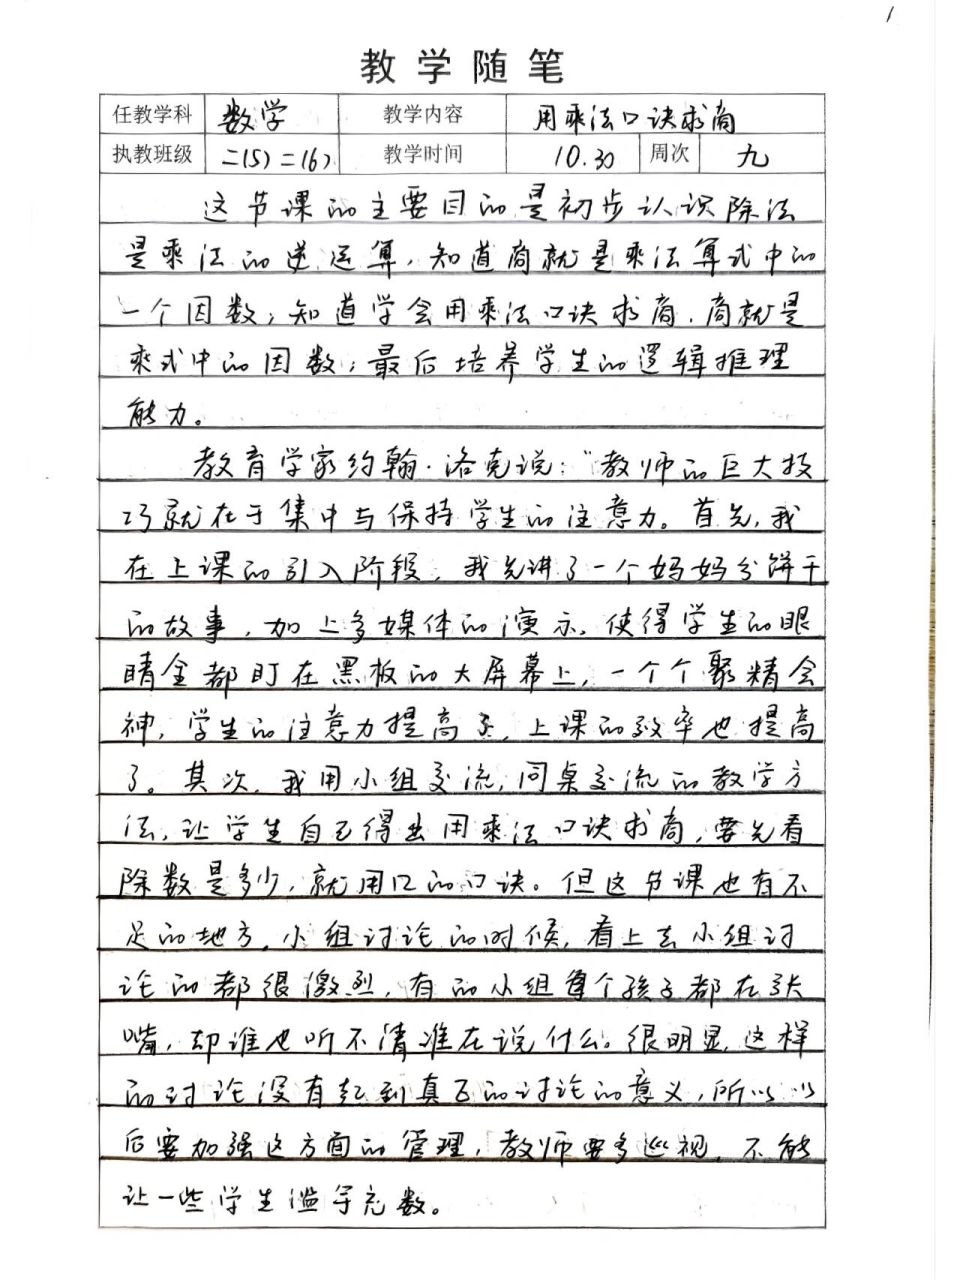 1
教学随笔
任教学科 数学 教学内容 用乘法口诀求商
执教班级 二(5) 二(6) 教学时间 10.30 周次 九
这节课的主要目的是初步认识除法
是乘法的逆运算,知道商就是乘法算式中的
一个因数;知道学会用乘法口诀求商,商就是
乘式中的因数;最后培养学生的逻辑推理
能力。
教育学家约翰·洛克说:“教师的巨大技
巧就在于集中与保持学生的注意力。首先,我
在上课的引入阶段,我先讲了一个妈妈分饼干
的故事,加上多媒体的演示,使得学生的眼
睛全都盯在黑板的大屏幕上,一个个聚精会
神,学生的注意力提高了,上课的效率也提高
了。其次,我用小组交流,同桌交流的教学方
法,让学生自己得出用乘法口诀求商,要先看
除数是多少,就用几的口诀。但这节课也有不
足的地方,小组讨论的时候,看上去小组讨
论的都很激烈,有的小组每个孩子都在张
嘴,却谁也听不清谁在说什么。很明显,这样
的讨论没有起到真正的讨论的意义,所以以
后要加强这方面的管理,教师要多巡视,不能
让一些学生滥竽充数。